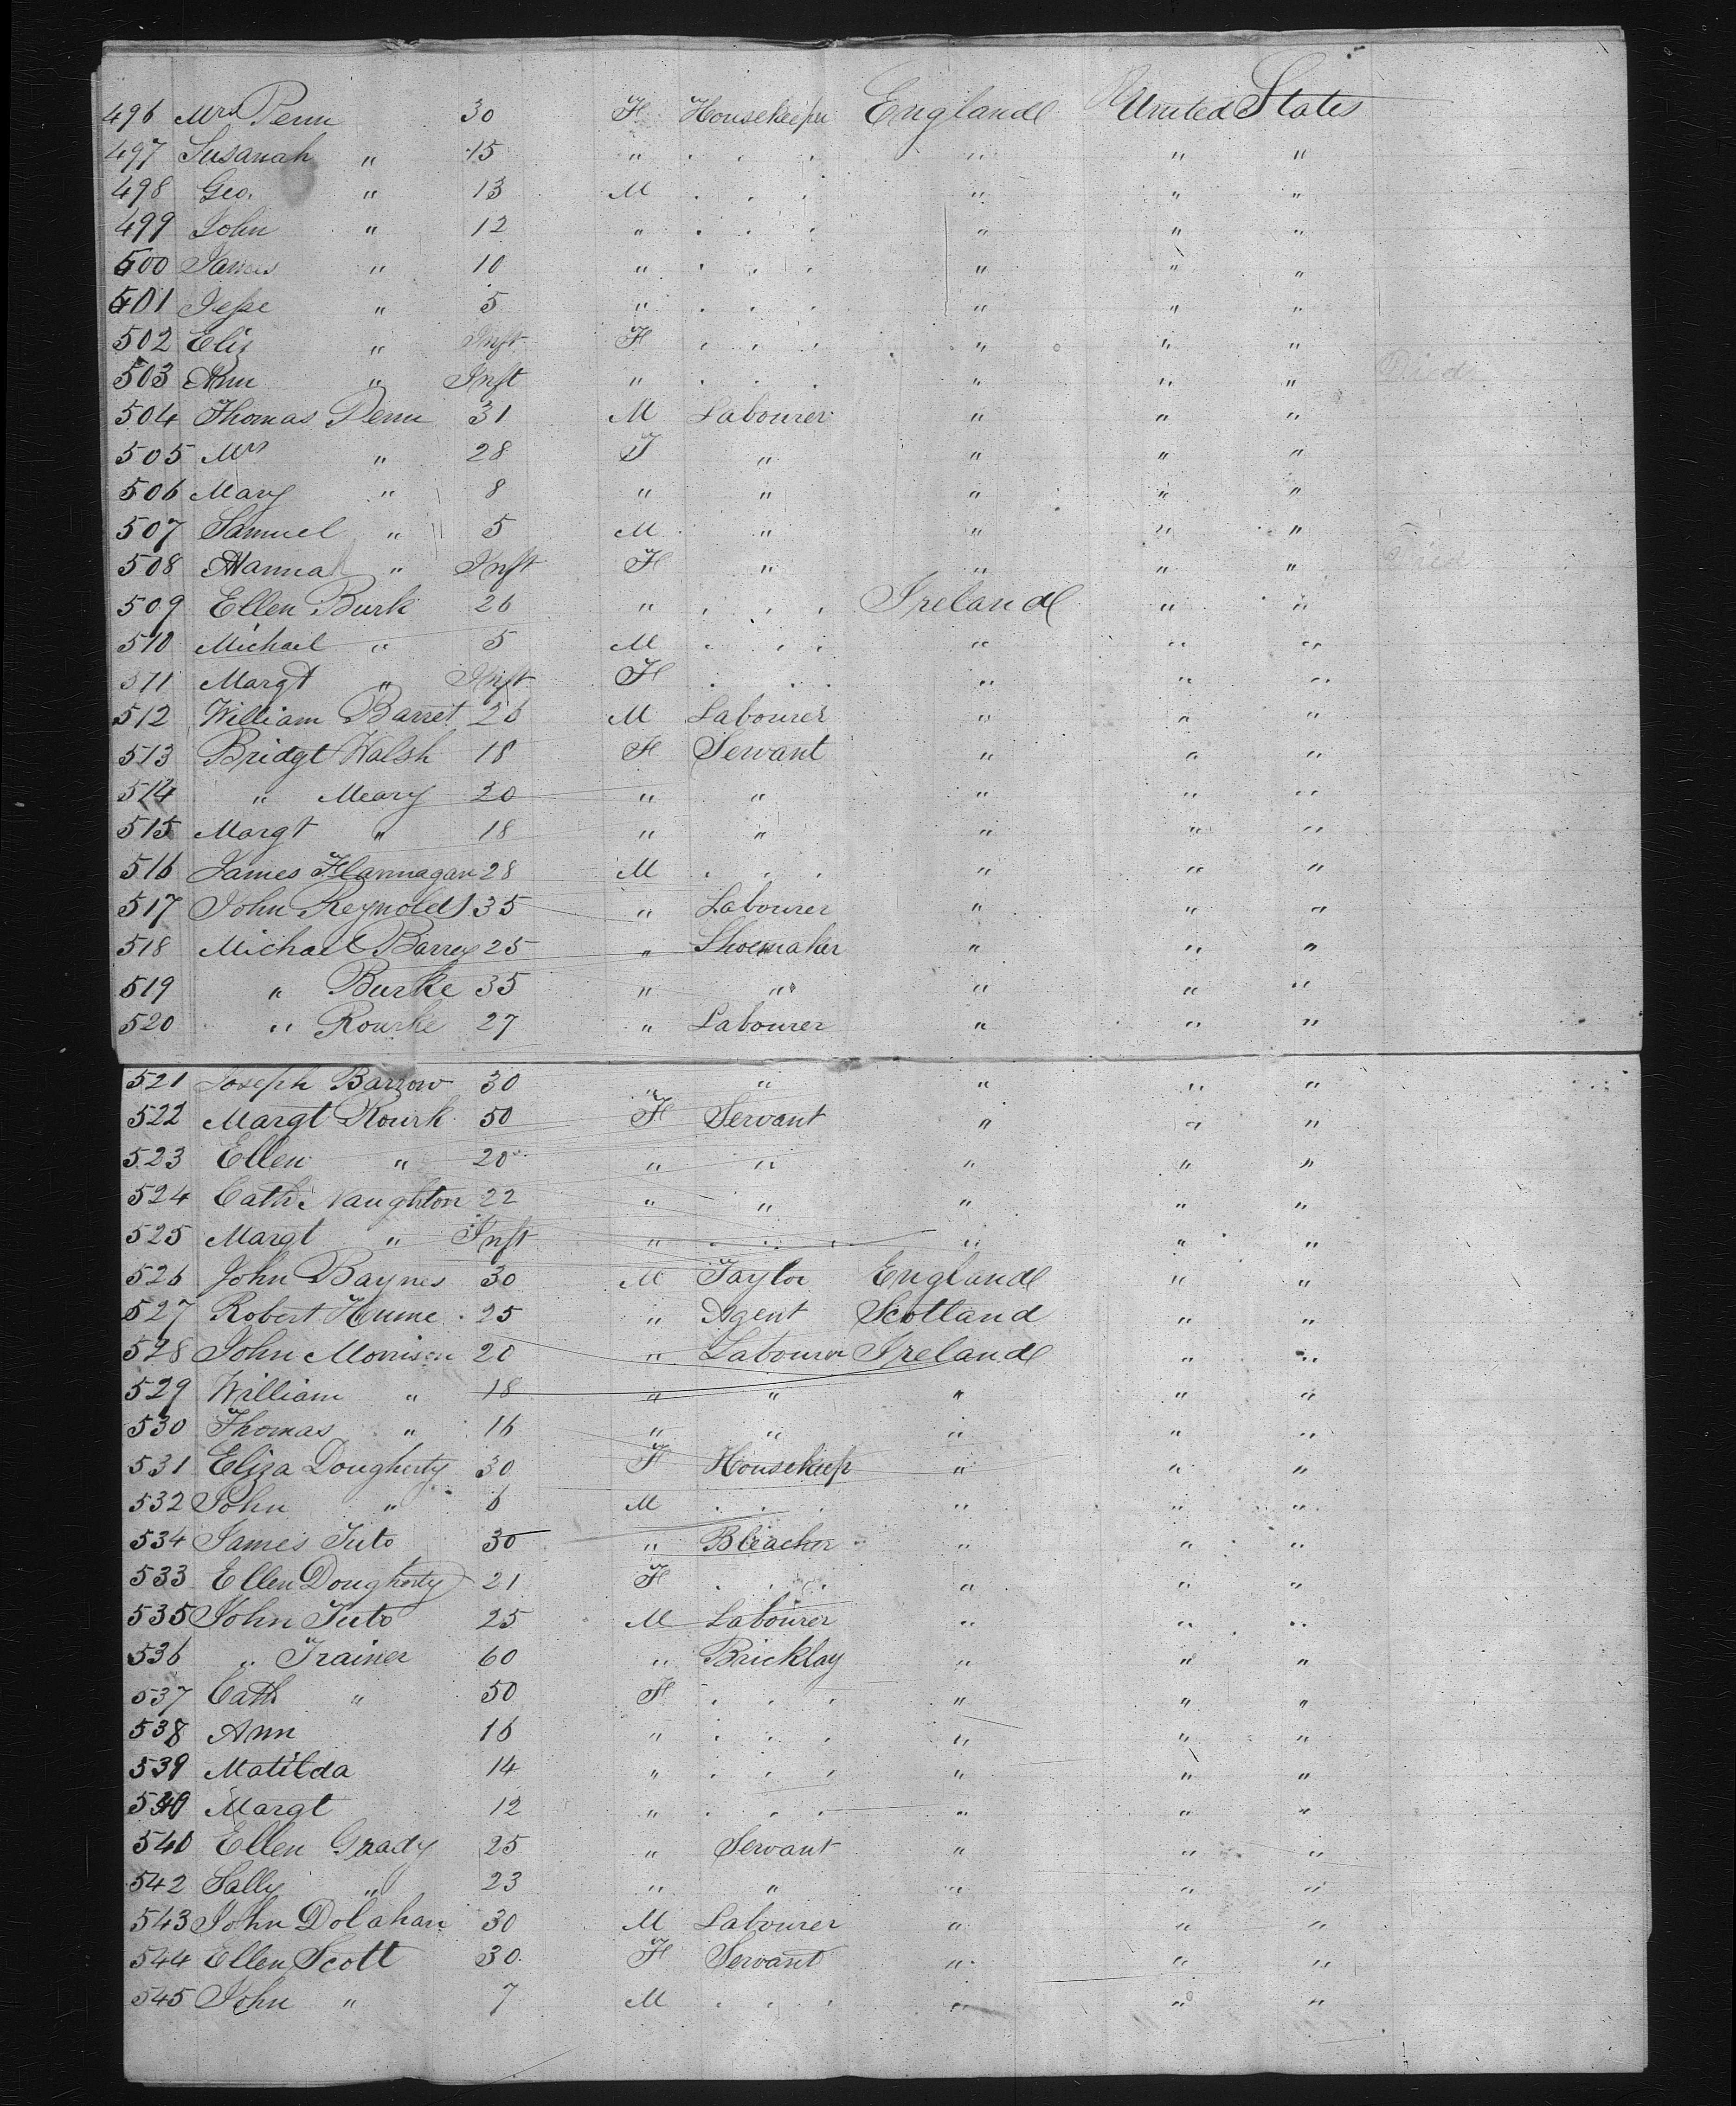 496 Mrs Penn 30 F Housekeeper England United States
497 Susanah " 15 " . . . " " "
498 Geo. " 13 M . . . " " "
499 John " 12 " . . . " " "
500 James " 10 " . . . " " "
501 Jesse " 5 " . . . " " "
502 Eliz " Inft F . . . " " "
503 Ann " Inft " . . . " " " Died
504 Thomas Penn 31 M Labourer " " "
505 Mrs " 28 F " " " "
506 Mary " 8 " " " " "
507 Samuel " 5 M " " " "
508 Hannah " Inft F " " " " Died
509 Ellen Burk 26 " . . . Ireland " "
510 Michael " 5 M . . . " " "
511 Margt " Inft F . . . " " "
512 William Barret 26 M Labourer " " "
513 Bridgt Walsh 18 F Servant " " "
514 " Meary 20 " " " " "
515 Margt " 18 " " " " "
516 James Flannagan 28 M . . . " " "
517 John Reynolds 35 " Labourer " " "
518 Michael Barrey 25 " Shoemaker " " "
519 " Burke 35 " " " " "
520 " Rourke 27 " Labourer " " "
521 Joseph Barrow 30 " " " " "
522 Margt Rourk 50 F Servant " " "
523 Ellen " 20 " " " " "
524 Cath. Naughton 22 " " " " "
525 Margt " Inft " . . . " " "
526 John Baynes 30 M Taylor England " "
527 Robert Hume 25 " Agent Scotland " "
528 John Morrison 20 " Labourer Ireland " "
529 William " 18 " " " " "
530 Thomas " 16 " " " " "
531 Eliza Dougherty 30 F Housekeep " " "
532 John " 6 M . . . " " "
534 James Tuto 30 " Bleacher " " "
533 Ellen Dougherty 21 F . . . " " "
535 John Tuto 25 M Labourer " " "
536 " Trainer 60 " Bricklay " " "
537 Cath " 50 F . . . " " "
538 Ann 16 " . . . " " "
539 Matilda 14 " . . . " " "
540 Margt 12 " . . . " " "
540 Ellen Grady 25 " Servant " " "
542 Sally " 23 " " " " "
543 John Dolahan 30 M Labourer " " "
544 Ellen Scott 30 F Servant " " "
545 John " 7 M . . . " " "